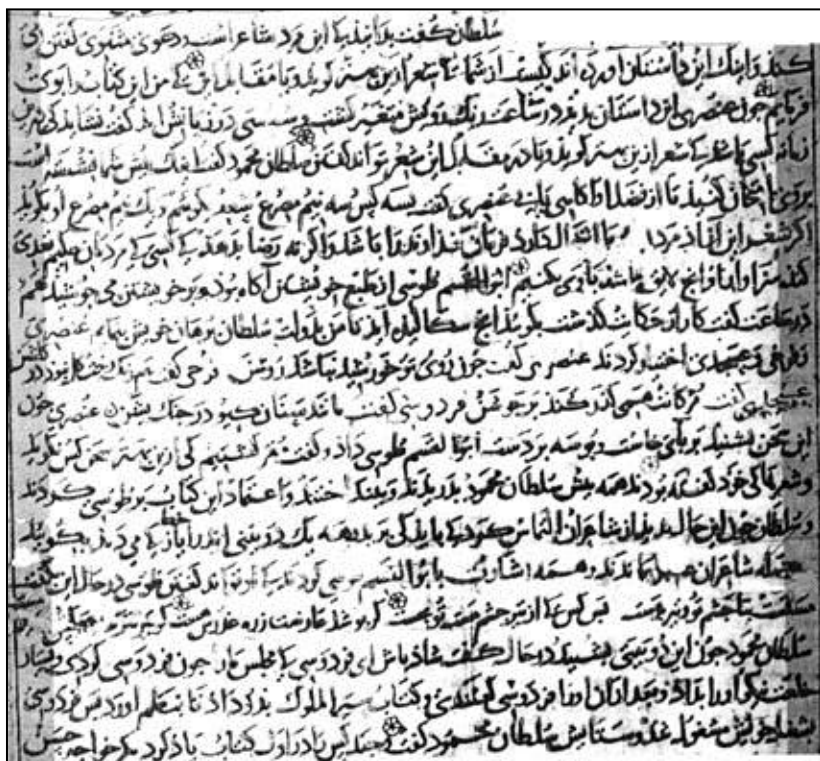 سلطان گفت بدانید کی این مرد شاعر است و دعوی مثنوی گفتن می
کند و اینک این داستان آورده اند کیست از شما کی شعر ازین بهتر گوید و با مقابل این کی من این کتاب را بوی
فرمایم چون عنصری این داستان بدید در ساعت رنگ رویش متغیر گشت و سه سی در زبانش آمد گفت نشاید کی درین
زمانه کسی باشد کی شعر ازین بهتر گوید و یا در مقابله این شعر تواند گفتن سلطان محمود گفت اینک پیش شما نشسته است
بروی امتحان کنید تا از فضل او آگاهی یابید عنصری گفت بسه کس سه نیم مصرع بگوئیم و یک نیم مصرع او بگوید
اگر شعر این آزاد مرد با اتفاق دارد فرمان خداوند را باشد و اگر نه رضا بدهد کی کسی کی مردمان حکیم تعدی
کند سزا و ادب او آنچ لایق باشد با وی بکنیم ابوالقسم طوسی از طبع خویشتن آگاه بود و بر خویشتن می جوشید هم
در ساعت گفت کار از حکایت گذشت بگوئید آنچ سگالیده اید تا من بدولت سلطان برهان خویش بنمایم عنصری
و فرخی و عسجدی اختیار کردند عنصری گفت چون روی تو خورشید نباشد روشن فرخی گفت هم رنگ رخت گل نبود در گلشن
عسجدی گفت مژگانت همی گذر کند بر جوشن فردوسی گفت مانند سنان گیو در جنگ پشن عنصری چون
این سخن بشنید بر پای خاست و بوسه بر دست ابوالقسم طوسی داد و گفت مقر گشتیم کی ازین بهتر سخن کس نگوید
و شعرها کی خود گفته بودند همه پیش سلطان محمود بدریدند و بینداختند و اعتماد این کتاب بر طوسی کردند
و سلطان چون این حال بدید از شاعران التماس کرد کی باید کی هر یک دو بیتی اندر خط ایاز کی می دمد بگوئید
جمله شاعران همه بماندند و همه اشارت بابوالقسم طوسی کردند کی او تواند گفتن طوسی در حال این بگفت
مستست بتا چشم تو و تیر بدست بس کس کی از تیر چشم مست تو بخست گر پوشد عارضت زره عذرش هست کز تیر بترسد همه کس
سلطان محمود چون این دو بیتی بشنید در حال گفت شاد باش ای فردوسی کی مجلس ما را چون فردوس کردی و بسیار
خلعت نیکو او را بداد و بعد از آن او را فردوسی خواندندی و کتاب سیر الملوک بدو داد تا بنظم آورد پس فردوسی
بشعر خویش مشغول شد و ستایش سلطان محمود گفت و چند کس را در اول کتاب یاد کرد یکی خواجه حسن